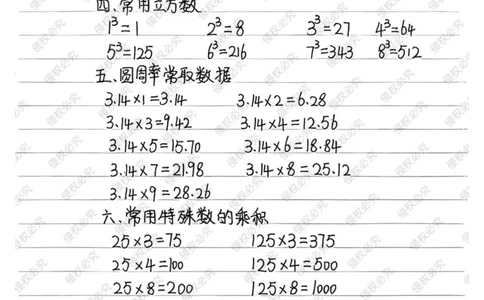 四、常用立方数
1³=1 2³=8 3³=27 4³=64
5³=125 6³=216 7³=343 8³=512
五、圆周率常取数据
3.14×1=3.14 3.14×2=6.28
3.14×3=9.42 3.14×4=12.56
3.14×5=15.70 3.14×6=18.84
3.14×7=21.98 3.14×8=25.12
3.14×9=28.26
六、常用特殊数的乘积
25×3=75 125×3=375
25×4=100 125×4=500
25×8=200 125×8=1000
侵权必究